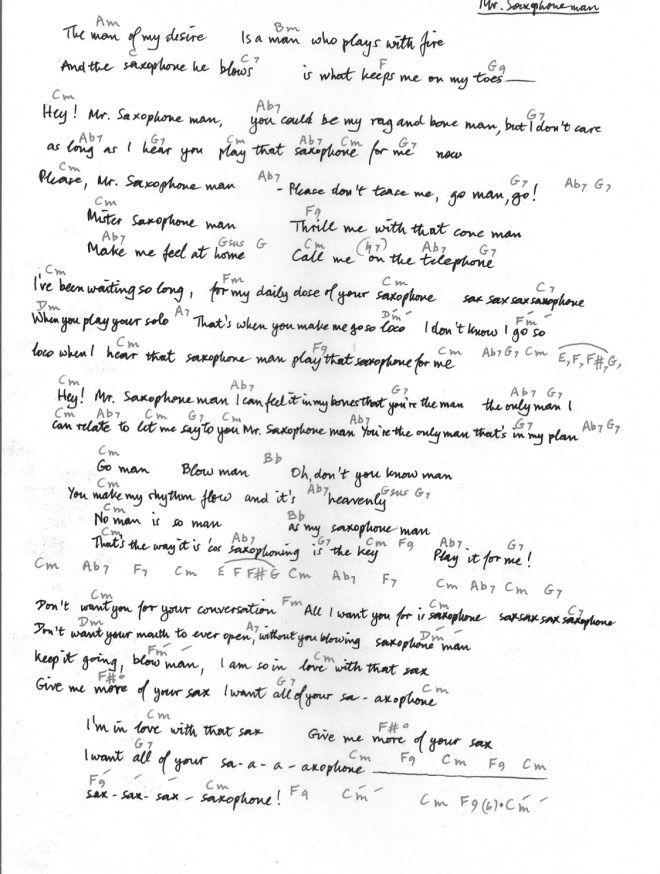 Mr. Saxophone man
Am Bm
The man of my desire Is a man who plays with fire
C C7 F G9
And the saxophone he blows is what keeps me on my toes
Cm Ab7 G7
Hey! Mr. Saxophone man, you could be my rag and bone man, but I don't care
Ab7 G7 Cm Ab7 Cm G7
as long as I hear you play that saxophone for me now
Cm Ab7 G7 Ab7 G7
Please, Mr. Saxophone man - Please don't tease me, go man, go!
Cm F9
Mister saxophone man Thrill me with that cone man
Ab7 Gsus G Cm (G7) Ab7 G7
Make me feel at home Call me on the telephone
Cm Fm Cm C7
I've been waiting so long, for my daily dose of your saxophone sax sax sax saxophone
Dm A7 Dm Fm
When you play your solo That's when you make me go so loco I don't know I go so
F9 Cm Ab7 G7 Cm E, F, F#, G,
loco when I hear that saxophone man play that saxophone for me
Cm Ab7 G7 Ab7 G7
Hey! Mr. Saxophone man I can feel it in my bones that you're the man the only man I
Cm Ab7 Cm G7 Cm Ab7 G7 Ab7 G7
can relate to let me say to you Mr. Saxophone man You're the only man that's in my plan
Cm Bb
Go man Blow man Oh, don't you know man
Cm Ab7 Gsus G7
You make my rhythm flow and it's heavenly
Cm Bb
No man is so man as my saxophone man
Cm Ab7 G7 Cm F9 Ab7 G7
That's the way it is 'cos saxophoning is the key Play it for me!
Cm Ab7 F7 Cm E F F# G Cm Ab7 F7 Cm Ab7 Cm G7
Cm Fm Cm C7
Don't want you for your conversation All I want you for is saxophone sax sax sax saxophone
Dm A7 Dm
Don't want your mouth to ever open, without you blowing saxophone man
Fm Cm
Keep it going, blow man, I am so in love with that sax
F#° G7 Cm
Give me more of your sax I want all of your sa - axophone
Cm F#°
I'm in love with that sax Give me more of your sax
G7 Cm F9 Cm F9 Cm
I want all of your sa - a - a - axophone
F9 Cm F9 Cm Cm F9(6) · Cm
sax - sax - sax - saxophone!